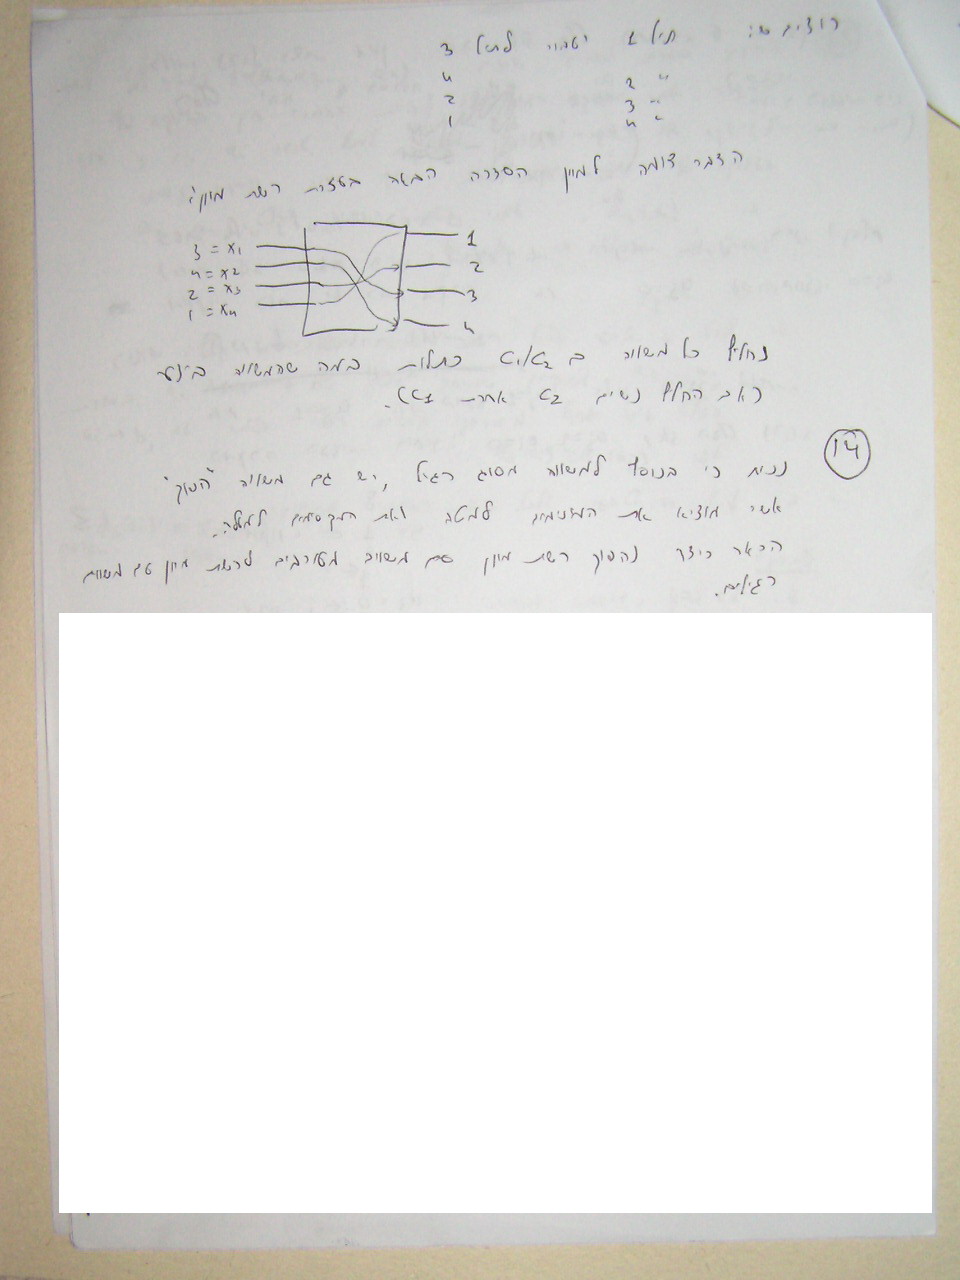 רוצים ש: תיל 1 יעבור לתיל 3
" 2 4
" 3 2
" 4 1
הדבר דומה למיון הסדרה הבאה בעזרת רשת מיון:
3 = x1 1
4 = x2 2
2 = x3 3
1 = x4 4
נחליף כל משווה ב c1/c2 כתלות במה שהמשווה ביצע
(אם החליף נשים c2 אחרת c1).
14
נניח כי בנוסף למשווה מסוג רגיל, יש גם משווה "הפוך"
אשר מוציא את המינימום למטה ואת המקסימום למעלה.
הראה כיצד נהפוך רשת מיון עם משווים מעורבים לרשת מיון עם משווים
רגילים.